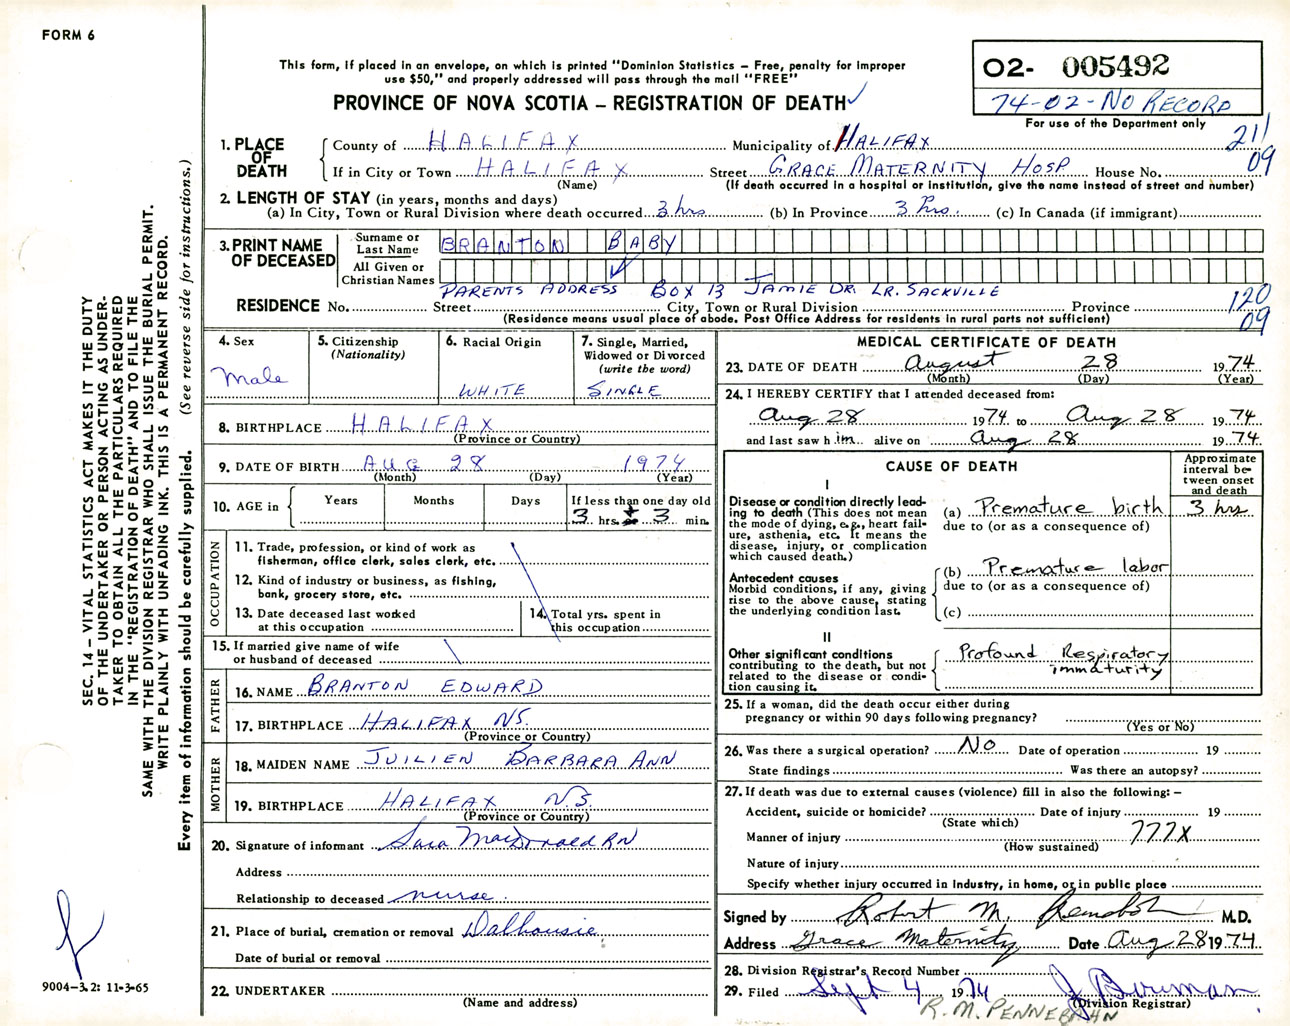 FORM 6
This form, if placed in an envelope, on which is printed "Dominion Statistics — Free, penalty for improper
use $50," and properly addressed will pass through the mail "FREE"
PROVINCE OF NOVA SCOTIA — REGISTRATION OF DEATH
02- 005492
74-02-NO RECORD
For use of the Department only
21
09
1. PLACE OF DEATH
County of HALIFAX Municipality of HALIFAX
If in City or Town HALIFAX Street GRACE MATERNITY HOSP House No.
(Name) (If death occurred in a hospital or institution, give the name instead of street and number)
2. LENGTH OF STAY (in years, months and days)
(a) In City, Town or Rural Division where death occurred 3 hrs (b) In Province 3 hrs. (c) In Canada (if immigrant)
3. PRINT NAME OF DECEASED
Surname or Last Name BRANTON BABY
All Given or Christian Names
PARENTS ADDRESS BOX 13 JAMIE DR. LR. SACKVILLE
RESIDENCE No. Street City, Town or Rural Division Province
(Residence means usual place of abode. Post Office Address for residents in rural parts not sufficient)
120
09
4. Sex
Male
5. Citizenship
(Nationality)
6. Racial Origin
WHITE
7. Single, Married, Widowed or Divorced
(write the word)
SINGLE
8. BIRTHPLACE HALIFAX
(Province or Country)
9. DATE OF BIRTH AUG 28 1974
(Month) (Day) (Year)
10. AGE in
Years Months Days If less than one day old
3 hrs. 3 min.
OCCUPATION
11. Trade, profession, or kind of work as
fisherman, office clerk, sales clerk, etc.
12. Kind of industry or business, as fishing,
bank, grocery store, etc.
13. Date deceased last worked
at this occupation
14. Total yrs. spent in
this occupation
15. If married give name of wife
or husband of deceased
FATHER
16. NAME BRANTON EDWARD
17. BIRTHPLACE HALIFAX NS.
(Province or Country)
MOTHER
18. MAIDEN NAME JUILIEN BARBARA ANN
19. BIRTHPLACE HALIFAX N.S.
(Province or Country)
20. Signature of informant Sara MacDonald RN
Address
Relationship to deceased nurse
21. Place of burial, cremation or removal Dalhousie
Date of burial or removal
22. UNDERTAKER
(Name and address)
MEDICAL CERTIFICATE OF DEATH
23. DATE OF DEATH August 28 1974
(Month) (Day) (Year)
24. I HEREBY CERTIFY that I attended deceased from:
Aug 28 1974 to Aug 28 1974
and last saw him alive on Aug 28 1974
CAUSE OF DEATH
Approximate interval between onset and death
I
Disease or condition directly leading to death (This does not mean the mode of dying, e.g., heart failure, asthenia, etc. It means the disease, injury, or complication which caused death.)
(a) Premature birth 3 hrs
due to (or as a consequence of)
Antecedent causes
Morbid conditions, if any, giving rise to the above cause, stating the underlying condition last.
(b) Premature labor
due to (or as a consequence of)
(c)
II
Other significant conditions
contributing to the death, but not related to the disease or condition causing it.
Profound Respiratory
immaturity
25. If a woman, did the death occur either during
pregnancy or within 90 days following pregnancy?
(Yes or No)
26. Was there a surgical operation? No Date of operation 19
State findings Was there an autopsy?
27. If death was due to external causes (violence) fill in also the following: —
Accident, suicide or homicide? Date of injury 19
(State which)
Manner of injury 777X
(How sustained)
Nature of injury
Specify whether injury occurred in Industry, in home, or in public place
Signed by Robert M. M.D.
Address Grace Maternity Date Aug 28 1974
28. Division Registrar's Record Number
29. Filed Sept 4 1974 J Bowman
(Division Registrar)
SEC. 14 — VITAL STATISTICS ACT MAKES IT THE DUTY
OF THE UNDERTAKER OR PERSON ACTING AS UNDER-
TAKER TO OBTAIN ALL THE PARTICULARS REQUIRED
IN THE "REGISTRATION OF DEATH" AND TO FILE THE
SAME WITH THE DIVISION REGISTRAR WHO SHALL ISSUE THE BURIAL PERMIT.
WRITE PLAINLY WITH UNFADING INK. THIS IS A PERMANENT RECORD.
Every item of information should be carefully supplied. (See reverse side for instructions.)
9004-3.2: 11-3-65